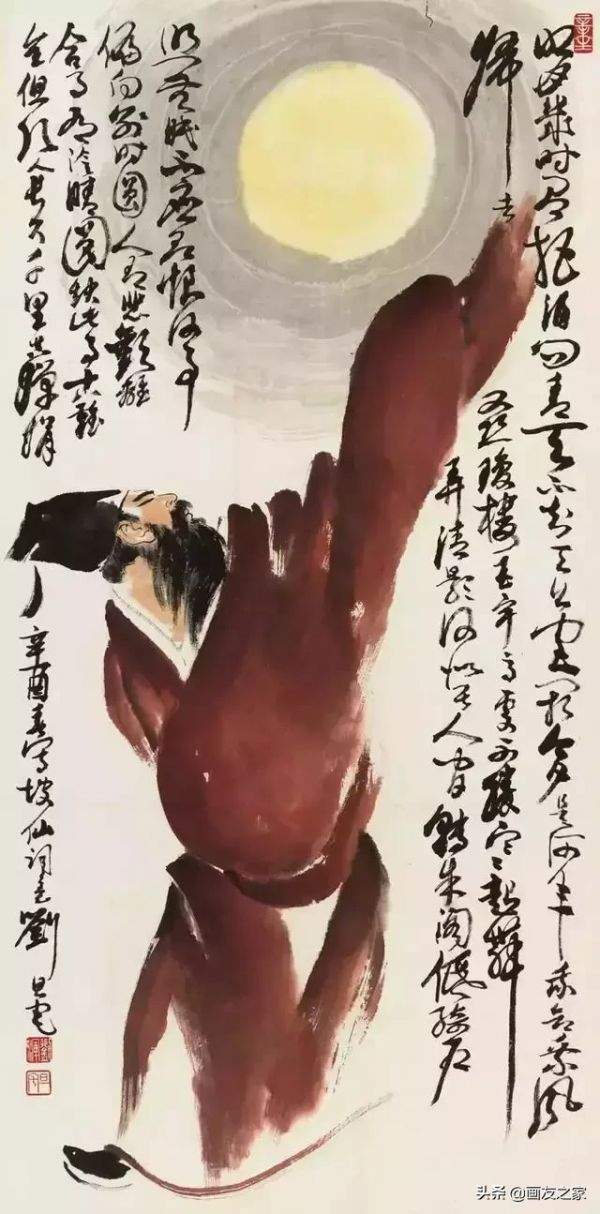 明月幾时有把酒问青天不知天上宫阙今夕是何年我欲乘风
歸去
又恐瓊樓玉宇高處不勝寒起舞
弄清影何似在人间轉朱阁低绮户
照无眠不应有恨何事
偏向别时圆人有悲歡離
合月有阴晴圆缺此事古難
全但願人長久千里共嬋娟
辛酉春写坡仙词意劉旦宅
头条 @画友之家